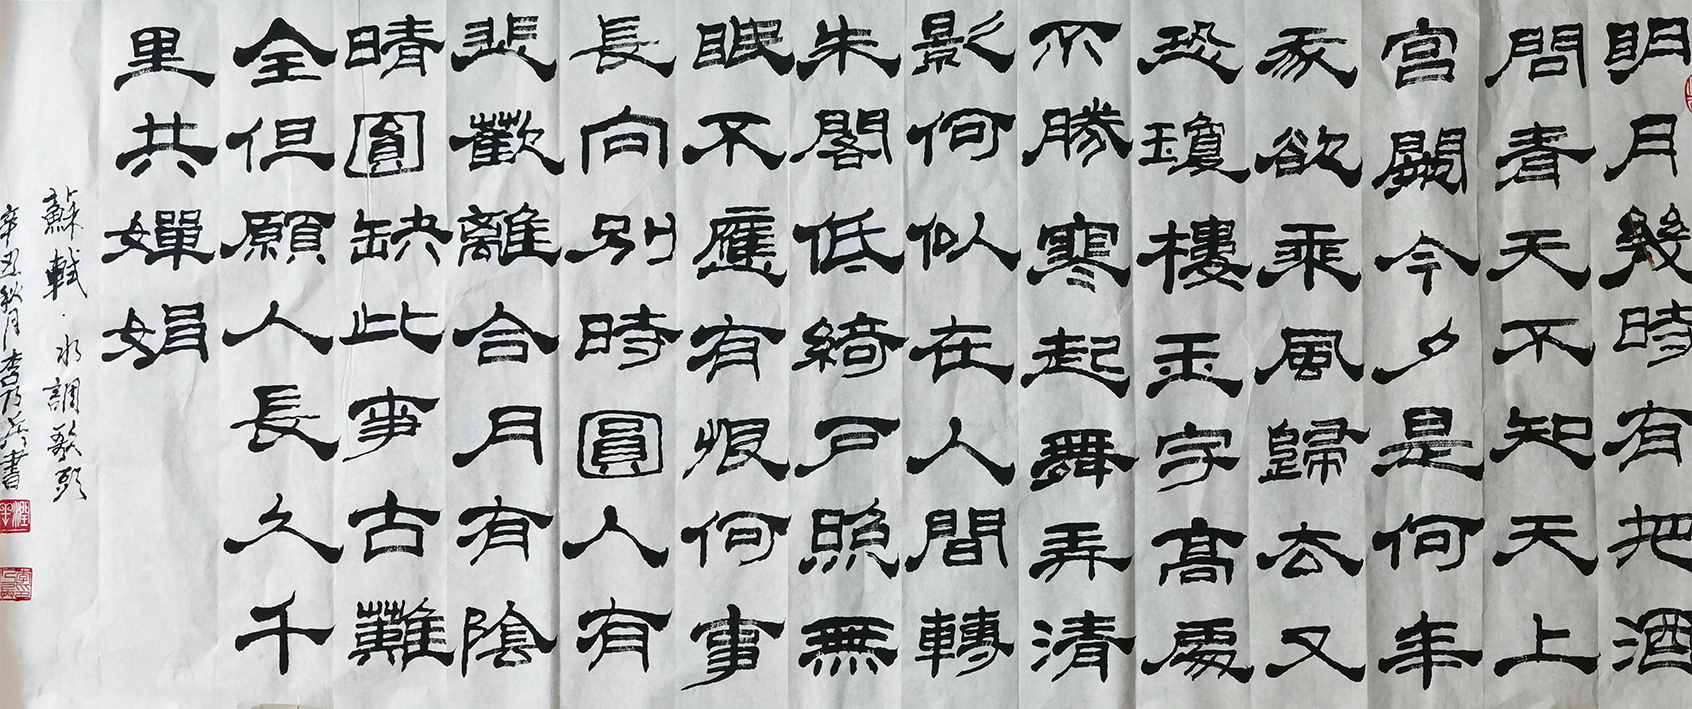 明月幾時有把酒
問青天不知天上
宮闕今夕是何年
我欲乘風歸去又
恐瓊樓玉宇高處
不勝寒起舞弄清
影何似在人間轉
朱閣低綺戶照無
眠不應有恨何事
長向別時圓人有
悲歡離合月有陰
晴圓缺此事古難
全但願人長久千
里共嬋娟
蘇軾·水調歌頭
辛丑秋月李乃兵書